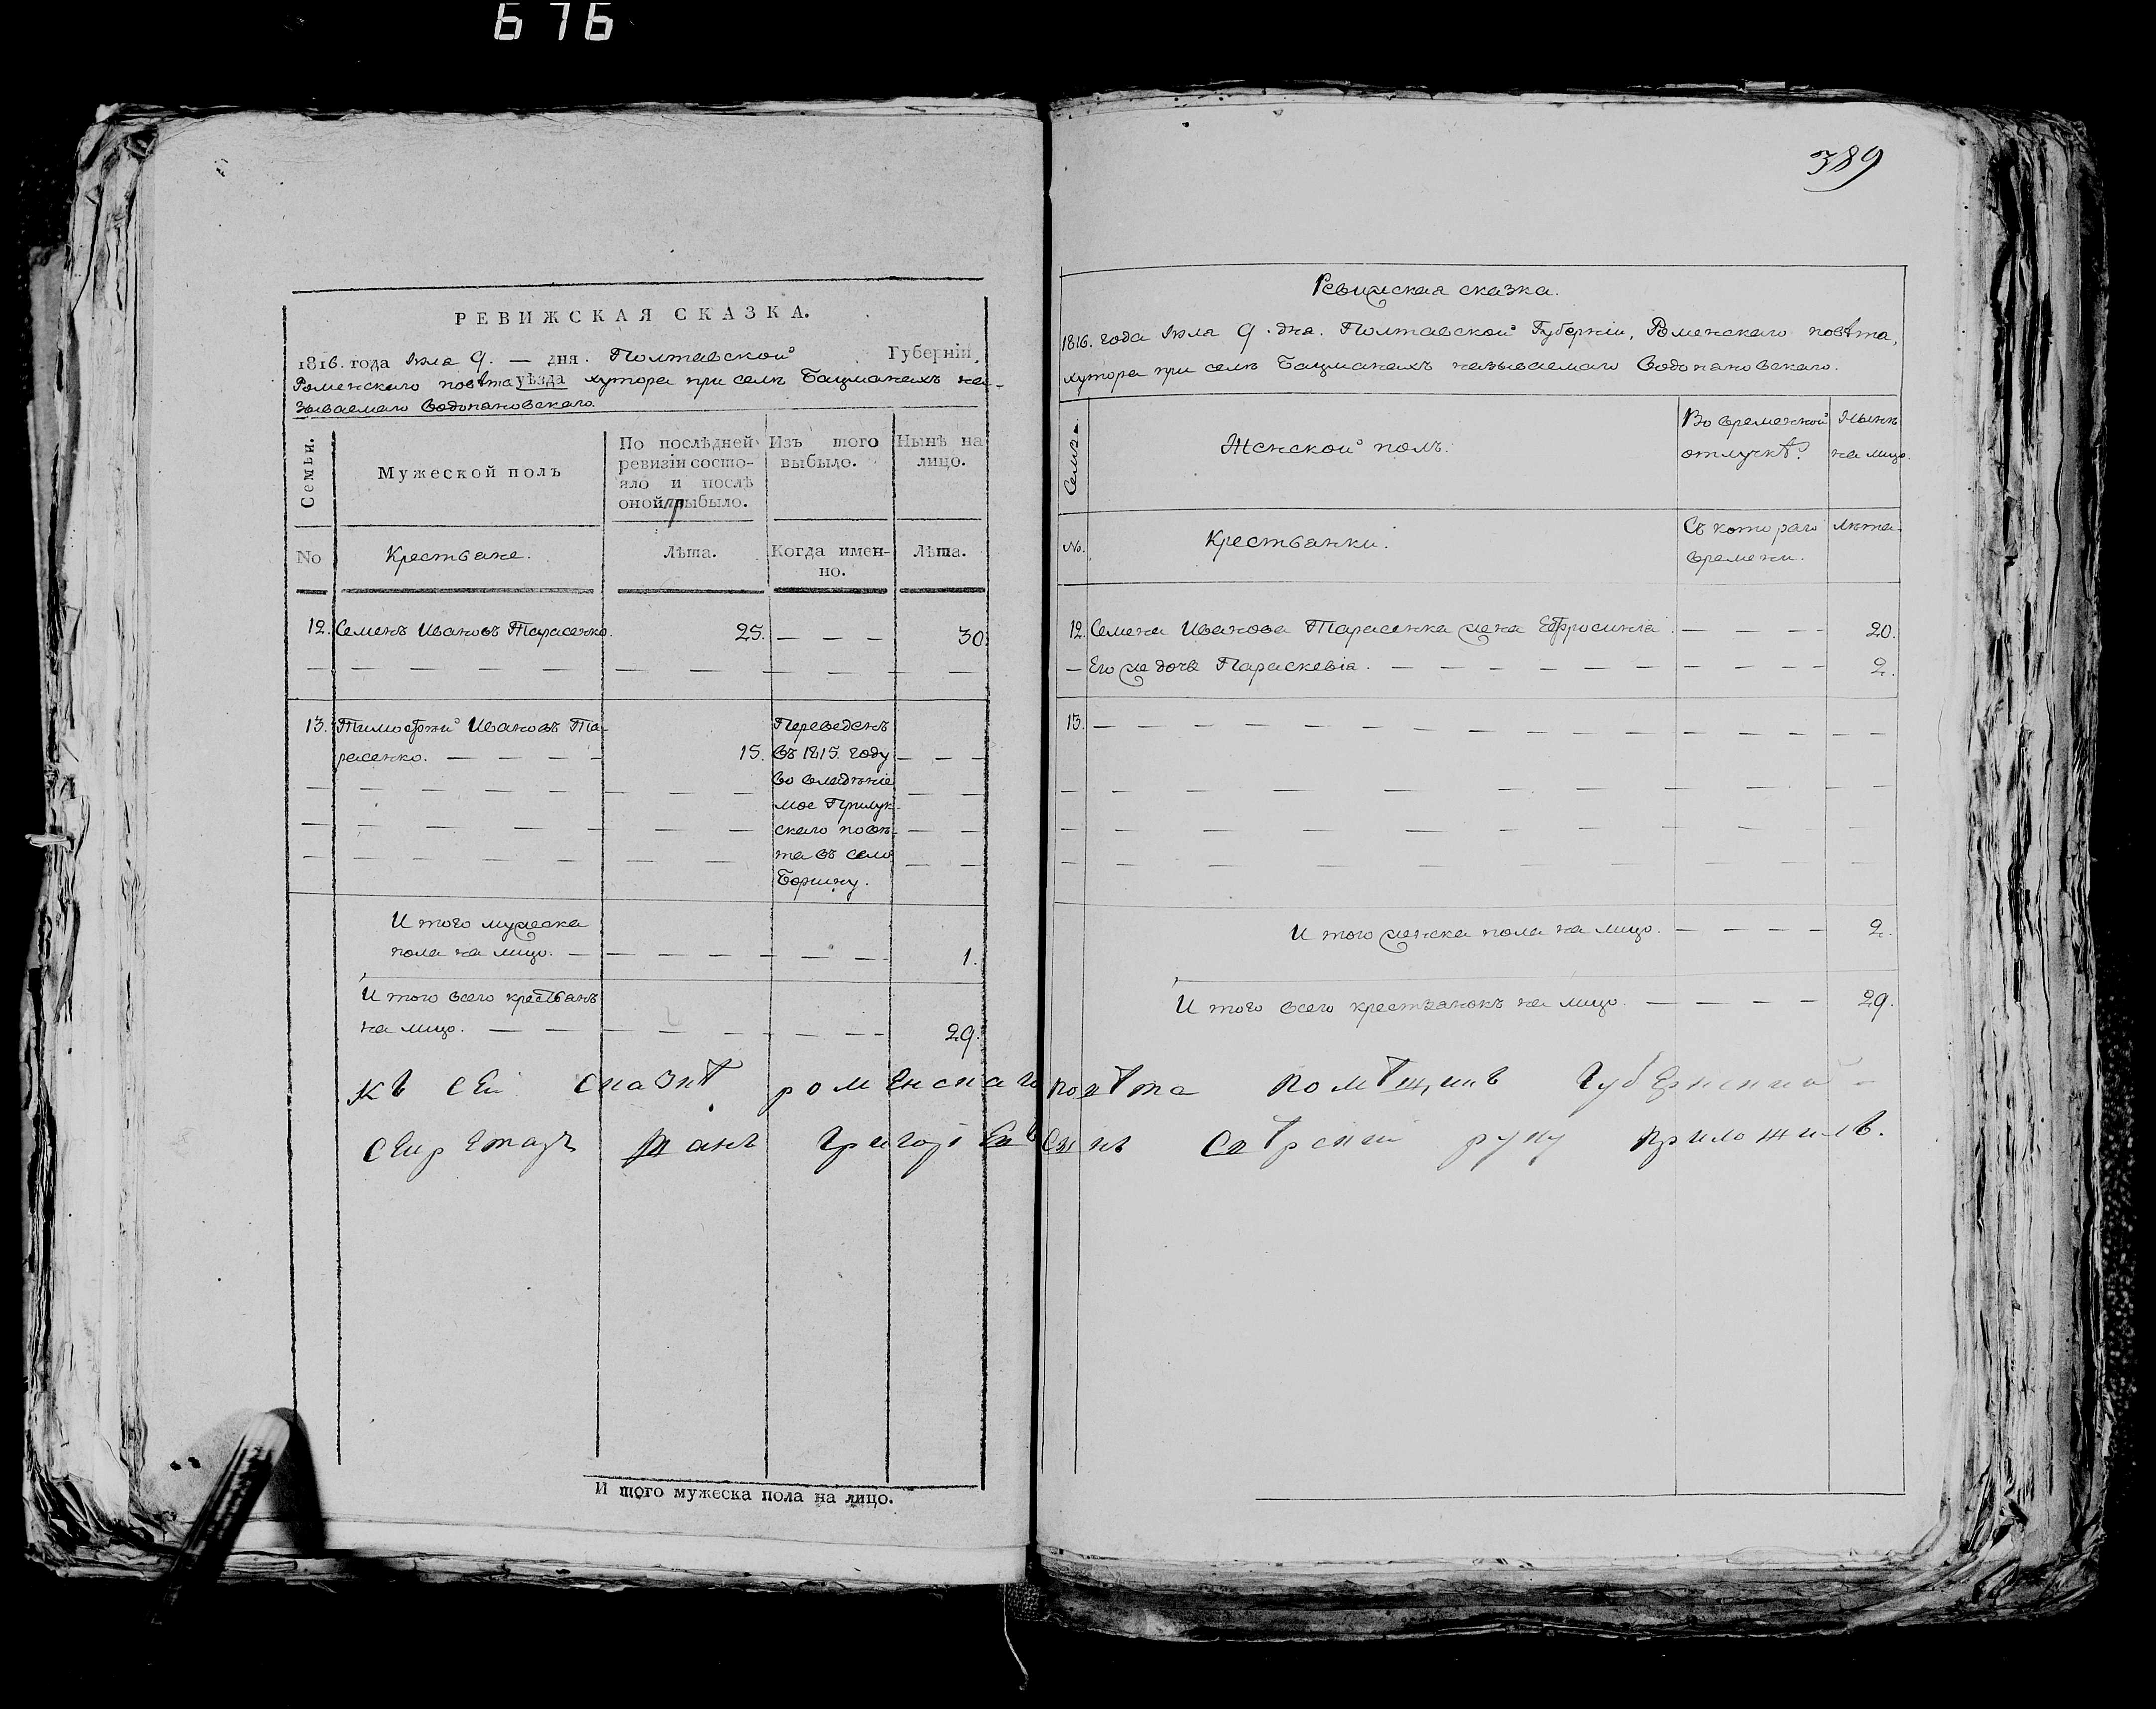 676
РЕВИЖСКАЯ СКАЗКА.
1816. года Июля 9. — дня. Полтавской Губерніи,
Роменского повѣта уѣзда хутора при селѣ Бацманахъ на-
зываемаго Водопановскаго.
Семьи.
Мужеской полъ
По послѣдней
ревизіи состо-
яло и послѣ
оной прибыло.
Изъ того
выбыло.
Нынѣ на
лицо.
No
Крестьяне.
Лѣта.
Когда имен-
но.
Лѣта.
12. Семенъ Ивановъ Тарасенко. 25. — — — 30.
13. Тимофѣй Ивановъ Та-
расенко. — — — — 15.
Переведенъ
въ 1815. году
во владѣніе
мое Прилук-
скаго повѣ-
та въ село
Боршну.
И того мужеска
пола на лицо. — — — — — — — 1.
И того всего крестьянъ
на лицо. — — — — — — — 29.
И того мужеска пола на лицо.
389
Ревижская сказка.
1816. года Июля 9. дня. Полтавской Губерніи, Роменскаго повѣта,
хутора при селѣ Бацманахъ называемаго Водопановскаго.
Семья.
Женской полъ.
Во временной
отлучкѣ.
Нынѣ
на лицо.
No.
Крестьянки.
Съ котораго
времени.
Лѣта.
12. Семена Иванова Тарасенка жена Ефросинія. — — — — 20.
— Его же дочь Параскевія. — — — — — — — — 2.
13. — — — — — — — — — — — — —
И того женска пола на лицо. — — — — 2.
И того всего крестьянокъ на лицо. — — — — 29.
Къ сей сказкѣ роменскаго повѣта помѣщикъ Губернской
секретарь Иванъ Григорьевъ сынъ Свѣрскій руку приложилъ.